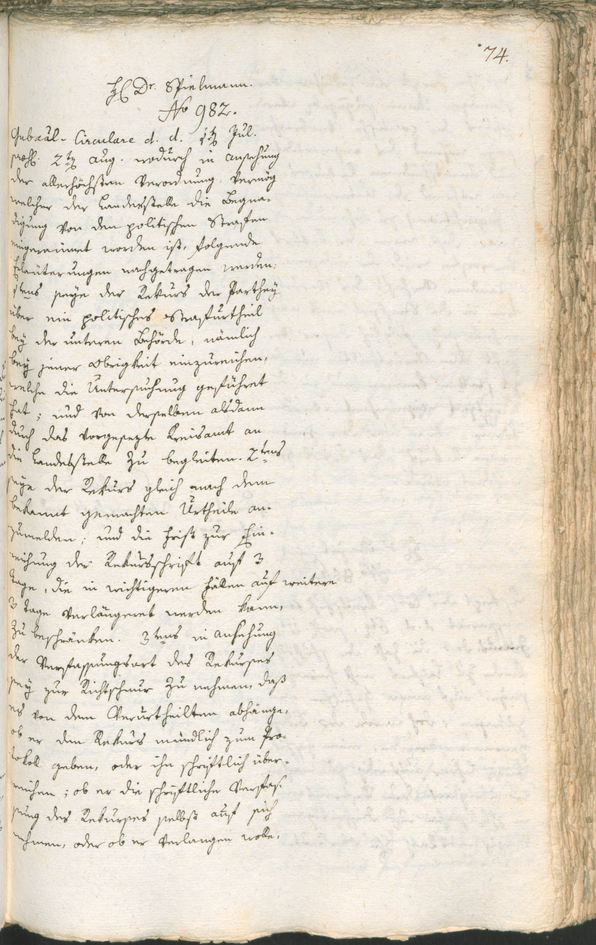 74.
H Dr. Spielmann.
No 982.
Gubernial-Circulare d. d. 1t Jul.
2t Aug. wodurch in Ansehung
der allerhöchsten Verordnung, vermög
welcher der Landesstelle die Begna-
digung von den politischen Strafen
eingeraumet worden ist, folgende
Erläuterungen nachgetragen werden:
1tens seye der Rekurs der Parthey
über ein politisches Strafurtheil
bey der unteren Behörde, nämlich
bey jener Obrigkeit einzureichen,
welche die Untersuchung geführet
hat; und von derselben alsdann
durch das vorgesezte Kreisamt an
die Landesstelle zu begleiten. 2tens
seye der Rekurs gleich nach dem
bekannt gemachten Urtheile an-
zumelden; und die Frist zur Ein-
reichung der Rekursschrift auf 3
Tage, die in wichtigeren Fällen auf weitere
3 Tage verlängeret werden kann,
zu beschränken. 3tens in Ansehung
der Verfassungsart des Rekurses
sey zur Richtschnur zu nehmen, daß
es von dem Verurtheilten abhänge,
ob er den Rekurs mündlich zum Pro-
tokoll geben, oder ihn schriftlich über-
reichen; ob er die schriftliche Verfas-
sung des Rekurses selbst auf sich
nehmen, oder ob er verlangen wolle,